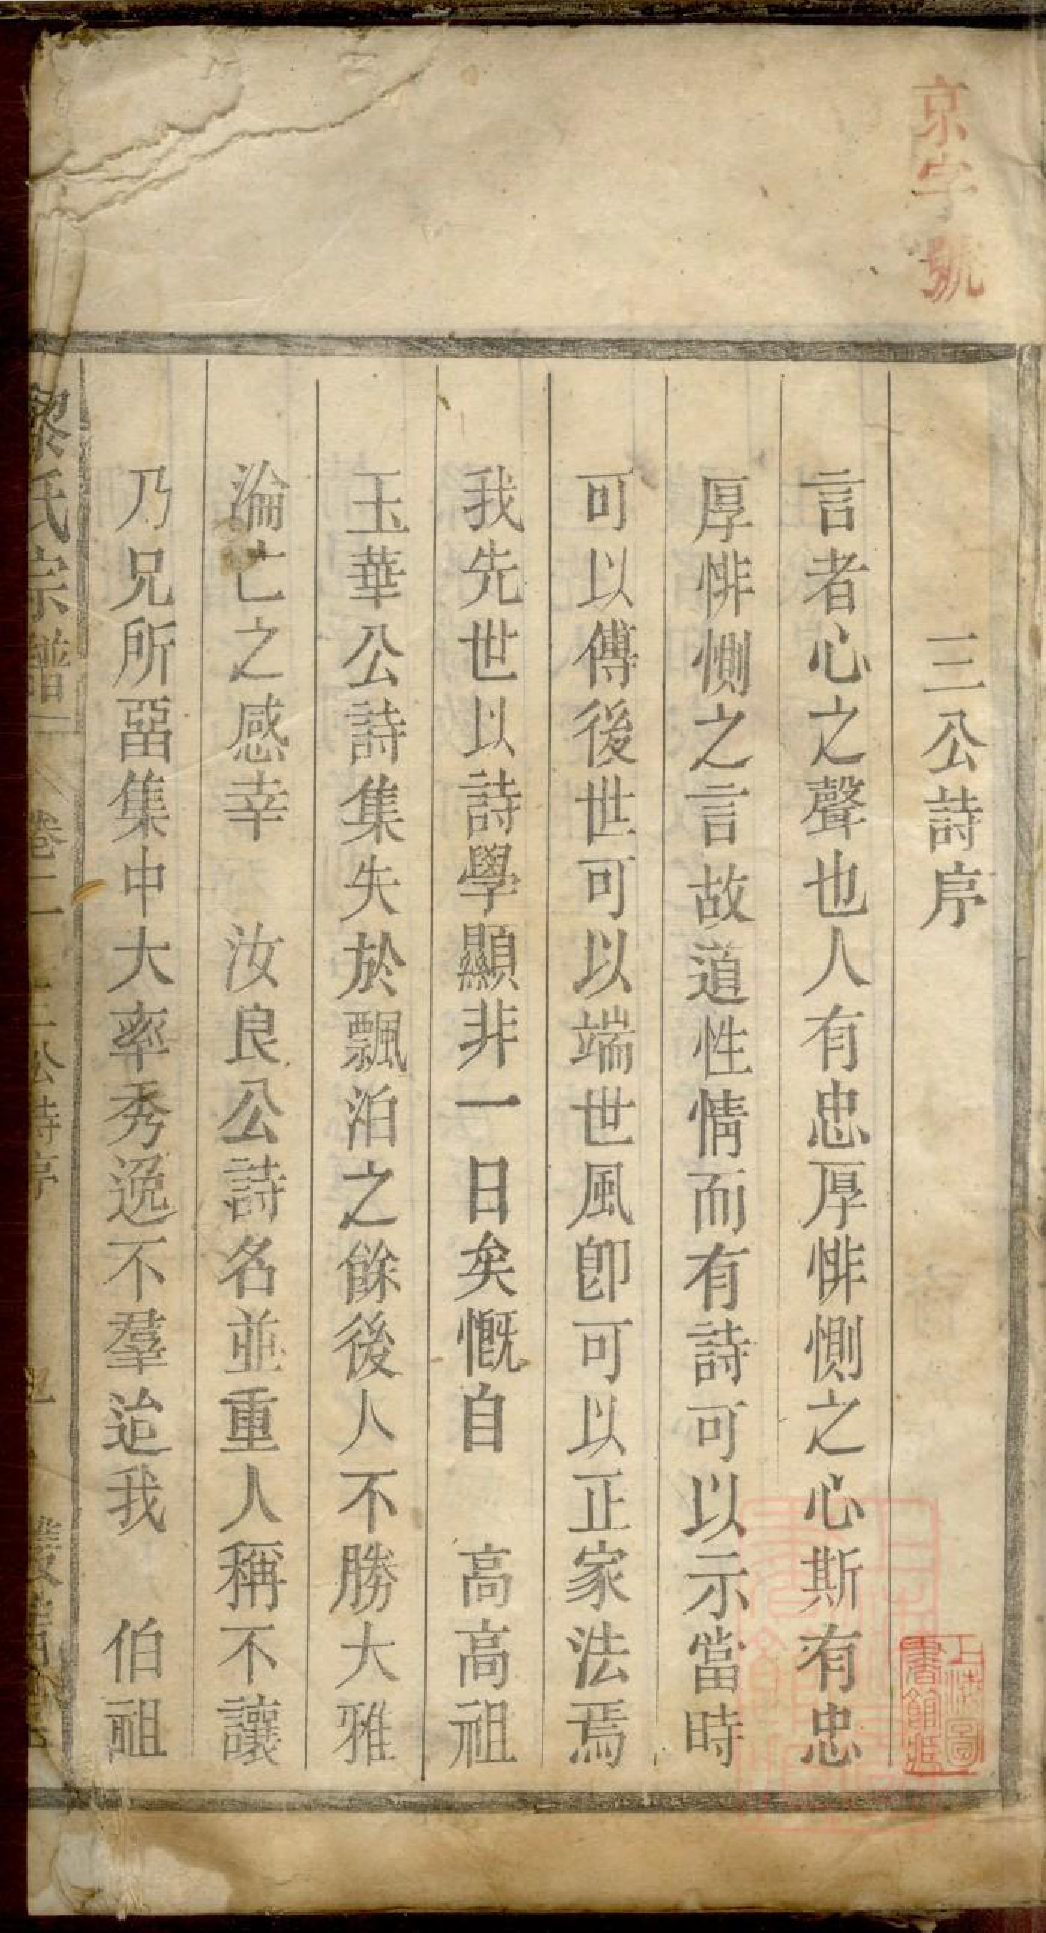 京字號
三公詩序
言者心之聲也人有忠厚悱惻之心斯有忠
厚悱惻之言故道性情而有詩可以示當時
可以傅後世可以端世風卽可以正家法焉
我先世以詩學顯非一日矣慨自　高高祖
玉華公詩集失於飄泊之餘後人不勝大雅
淪亡之感幸　汝良公詩名並重人稱不讓
乃兄所畱集中大率秀逸不羣迨我　伯祖
黎氏宗譜　卷二　三公詩序
上海圖書館藏